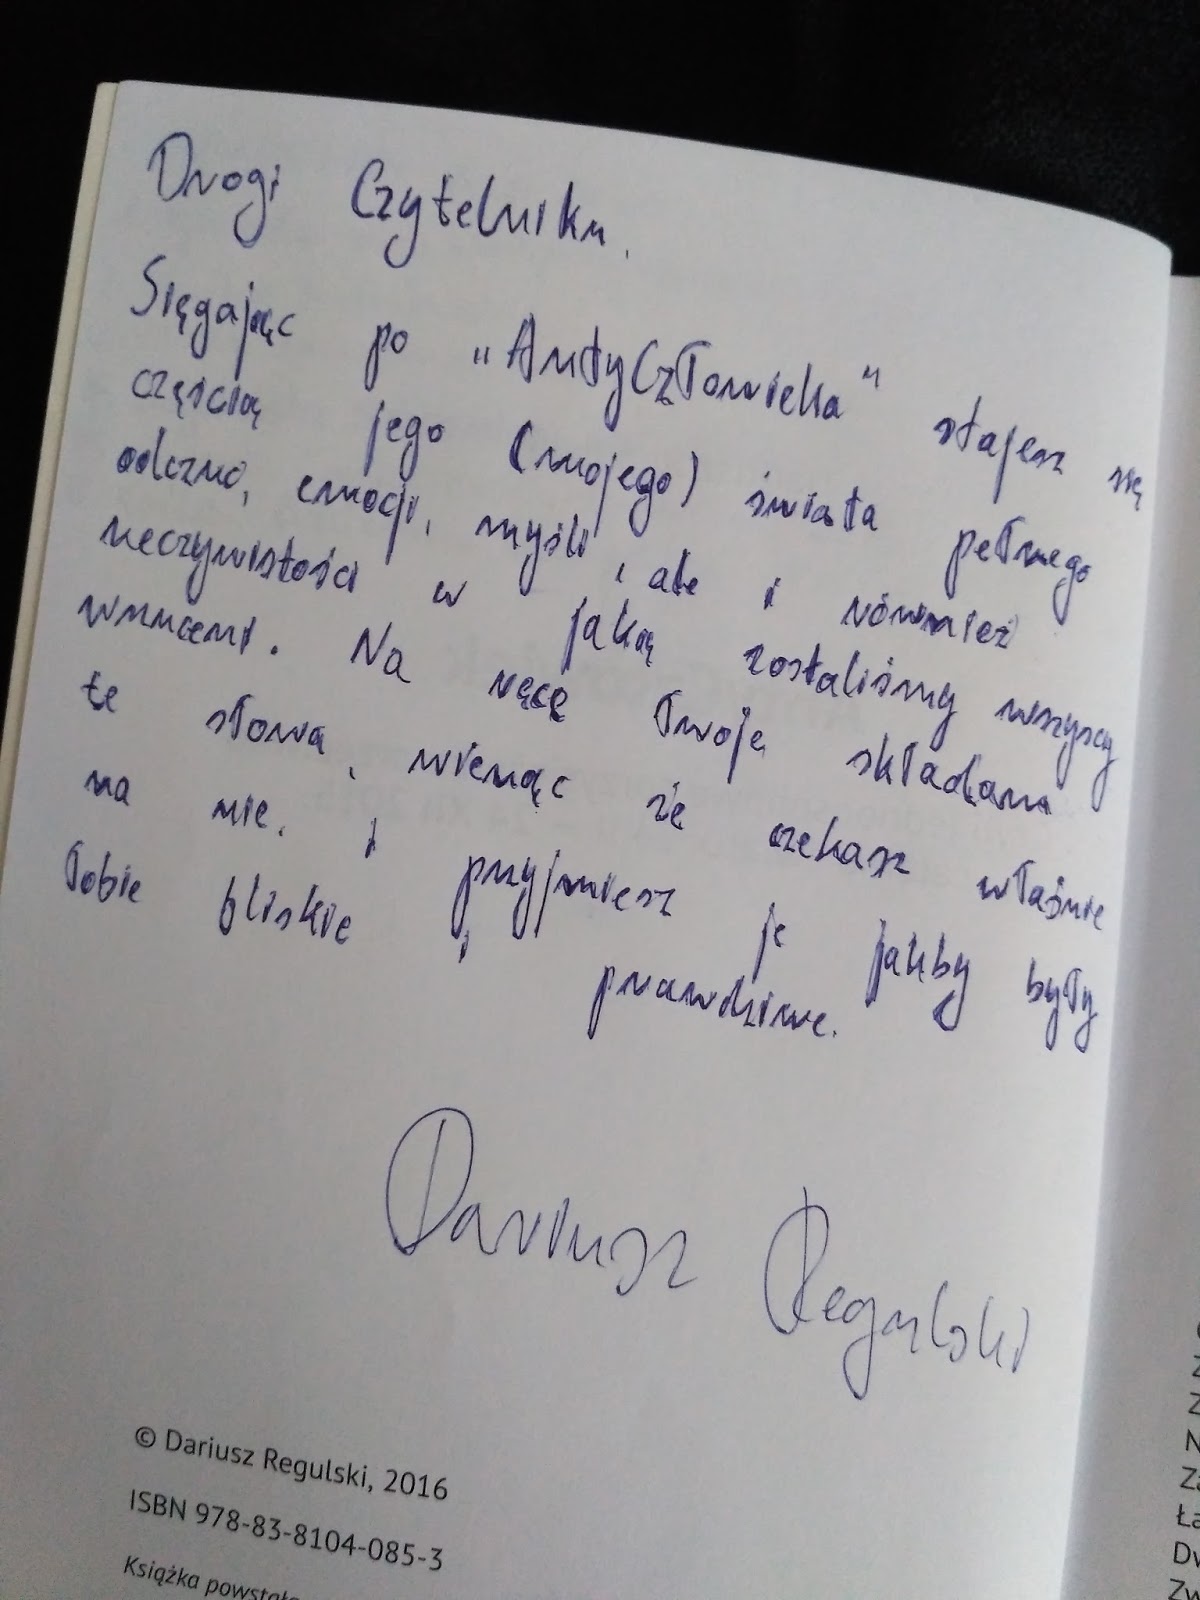 Drogi Czytelniku,
Sięgając po „AntyCzłowieka" stajesz się
częścią jego (mojego) świata pełnego
odczuć, emocji, myśli, ale i również
rzeczywistości w jaką zostaliśmy wszyscy
wrzuceni. Na ręcę twoje składam
te słowa, wierząc że czekasz właśnie
na nie. I przyjmiesz je jakby były
Tobie bliskie i prawdziwe.
Dariusz Regulski
© Dariusz Regulski, 2016
ISBN 978-83-8104-085-3
Książka
Z
Z
N
Za
Ła
Dw
Zw